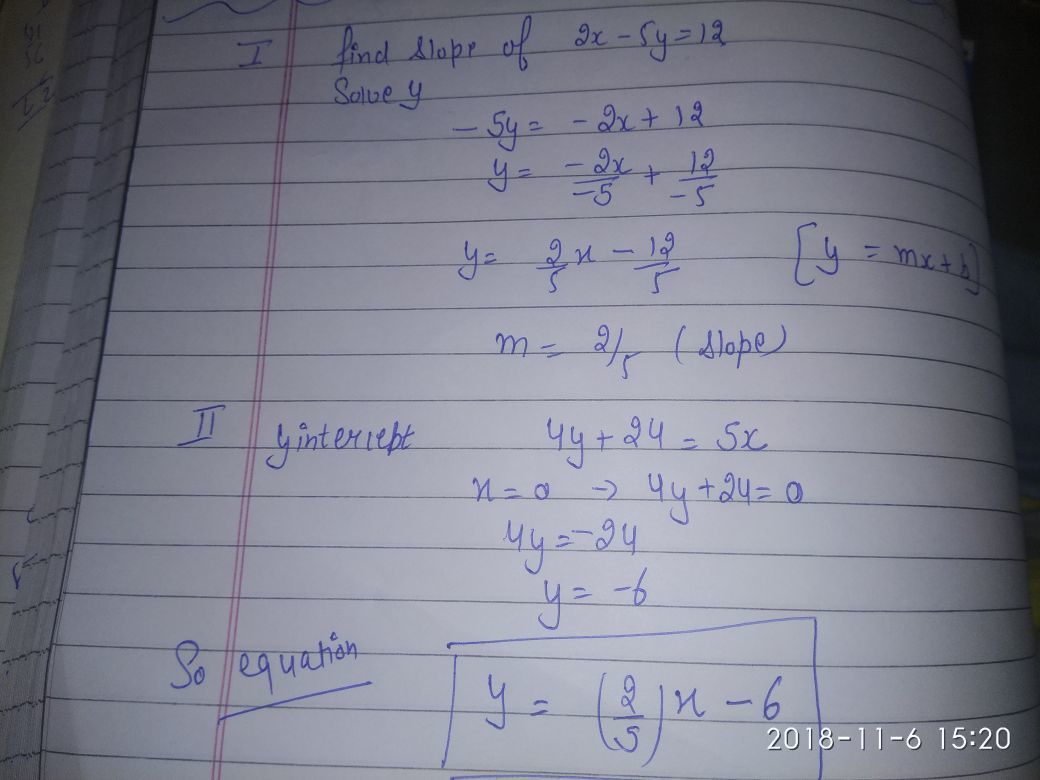 I find slope of 2x - 5y = 12
Solve y
- 5y = - 2x + 12
y = -2x/-5 + 12/-5
y = 2/5 x - 12/5 [y = mx + b]
m = 2/5 (slope)
II y intercept 4y + 24 = 5x
x = 0 → 4y + 24 = 0
4y = -24
y = -6
So equation
y = (2/5) x - 6
2018-11-6 15:20